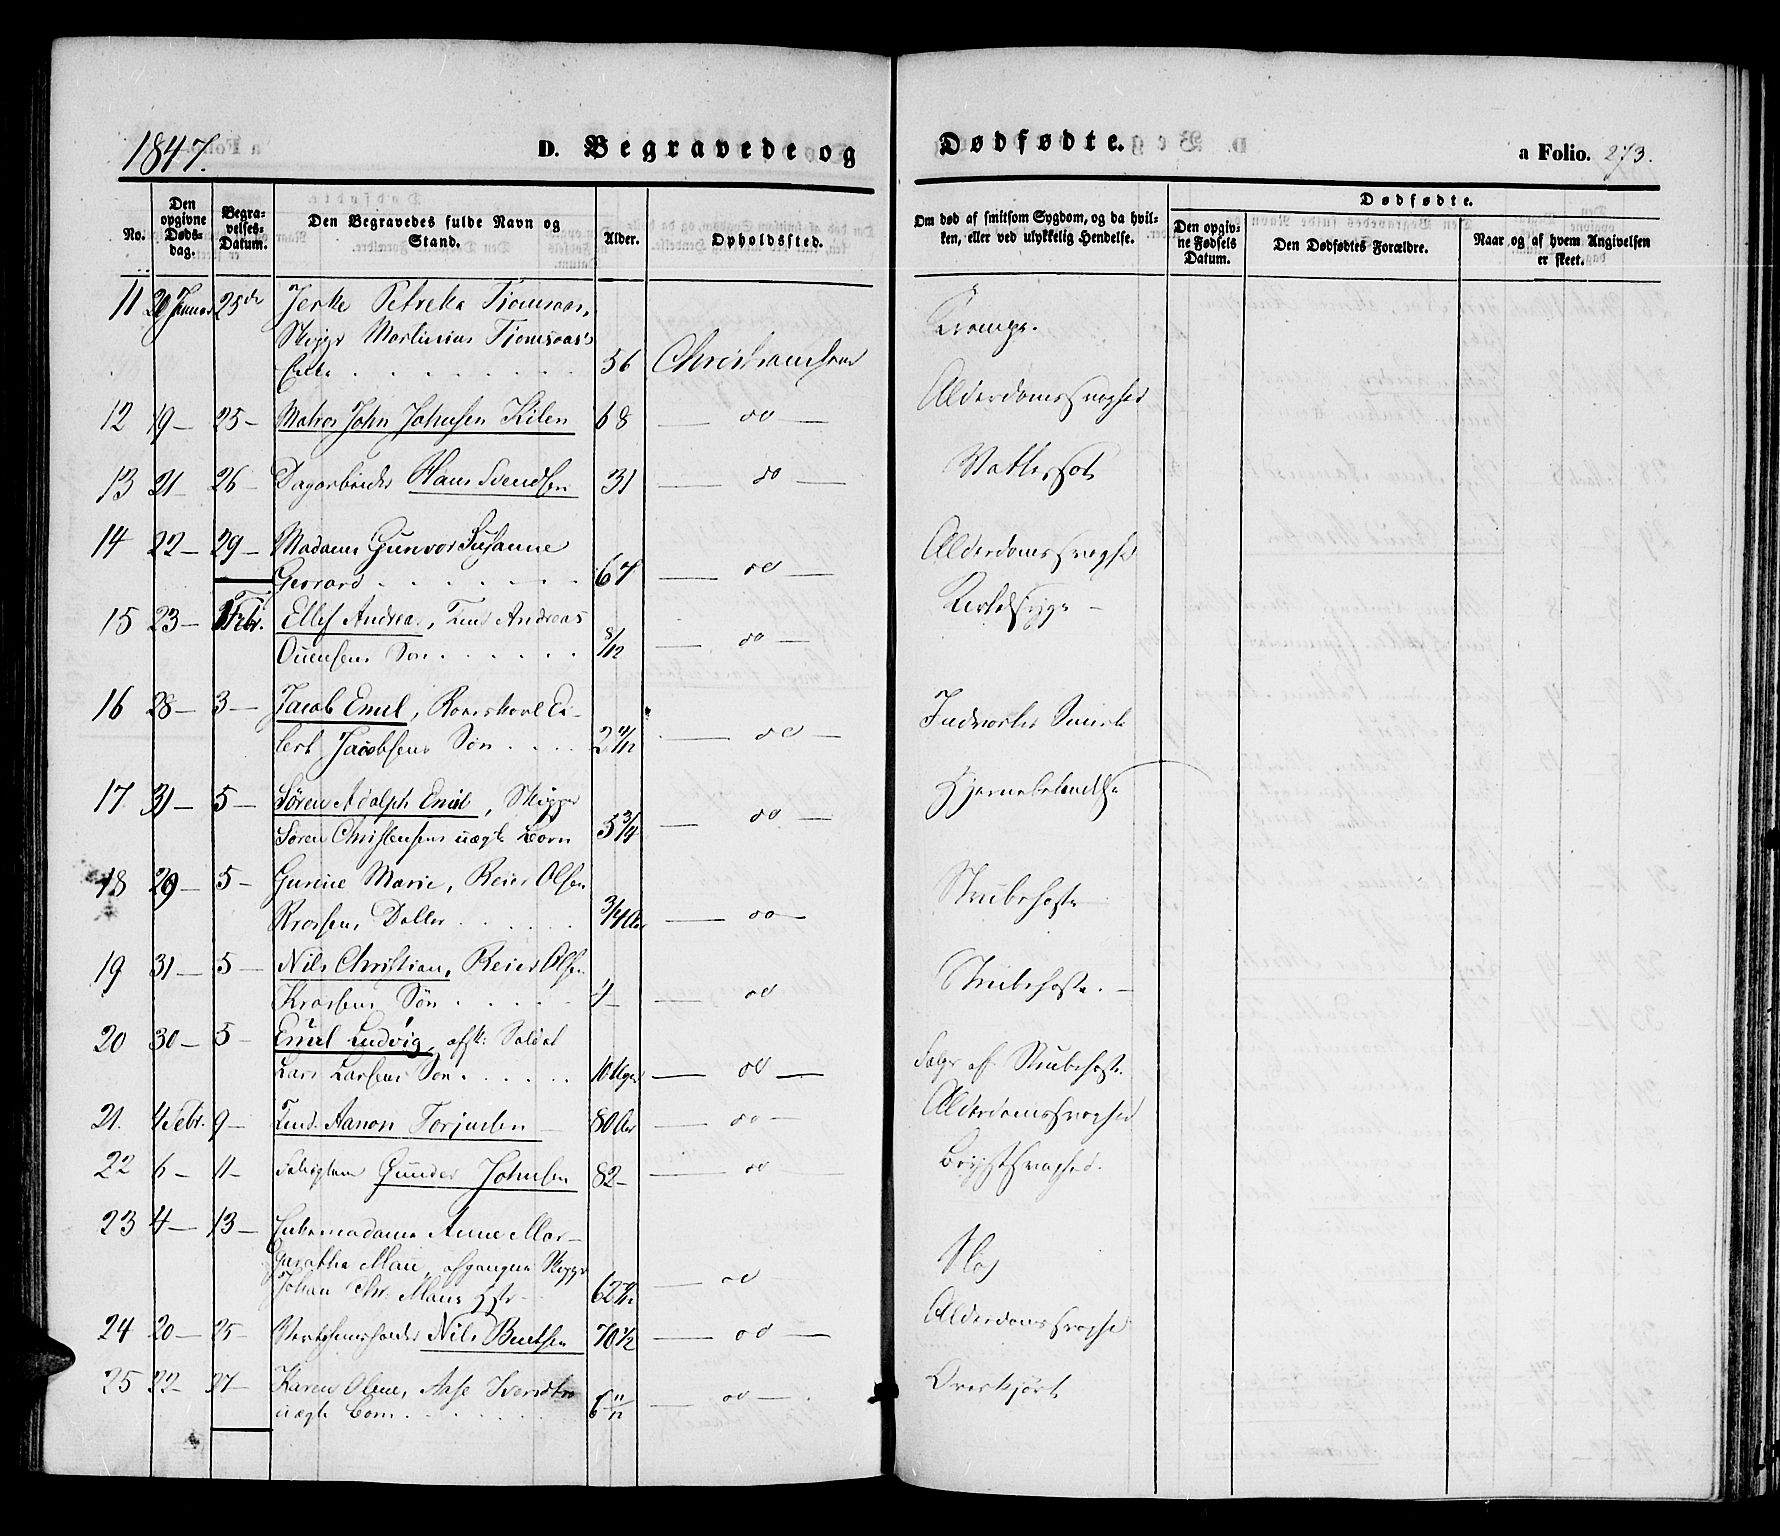 1847.
D. Begravede og
Dødfødte.
a Folio. 273.
No.
Den opgivne Døds-dag.
Begra-velses-Datum.
Den Begravedes fulde Navn og Stand.
Alder.
Opholdssted.
Om død af smitsom Sygdom, og da hvil-ken, eller ved ulykkelig Hendelse.
Dødfødte.
Den opgiv-ne Fødsels Datum.
Den Dødfødtes Forældre.
Naar og af hvem Angivelsen er skeet.
11 20 Januar 25de Petreka Tjomsaas,
Skipr Martinius Tjomsaas's
Enke 56 Christiansand Krampe.
12 19 25 Matros John Johnsen Kilen 68 do Alderdomssvaghed
13 21 26 Dagarbeider Hans Svendsen 31 do Vattersot
14 22 29 Madame Gunvor Susanne
Gerrard 67 do Alderdomssvaghed
15 23 1 Febr. Ellef Andreas, Andreas
Søn 8/12 do
16 28 3 Jacob Emil, Ei-
lert Jacobsens Søn 2 4/12 do Indvortes
17 31 5 Søren Adolph Emil, Skipper
Søren Christensens uægte Barn 5 3/4 do Hjernebetændelse
18 29 5 Gurine Marie, Reier Olsen
Krossens Datter 3/4 Aar do Strubehoste
19 31 5 Nils Christian, Reier Olsen
Krossens Søn 4 do Strubehoste.
20 30 5 Emil Ludvig, afsk: Soldat
Lars Larsens Søn 10 Uger do Følge af Strubehoste.
21. 4 Febr. 9 Aanon Torjusen 80 Aar do Alderdomssvaghed
22 6 11 Gunder Johnsen 82 do Brystsvaghed.
23 4 13 Enkemadame Anne Mar-
garetha afgangne Skipper
Johan Chr. 62 do Slag
24 20 25 Nils Bentsen 70 1/2 do Alderdomssvaghed
25 22 27 Karen Oline, Aase
uægte Barn 6 11/12 do Overkjørt